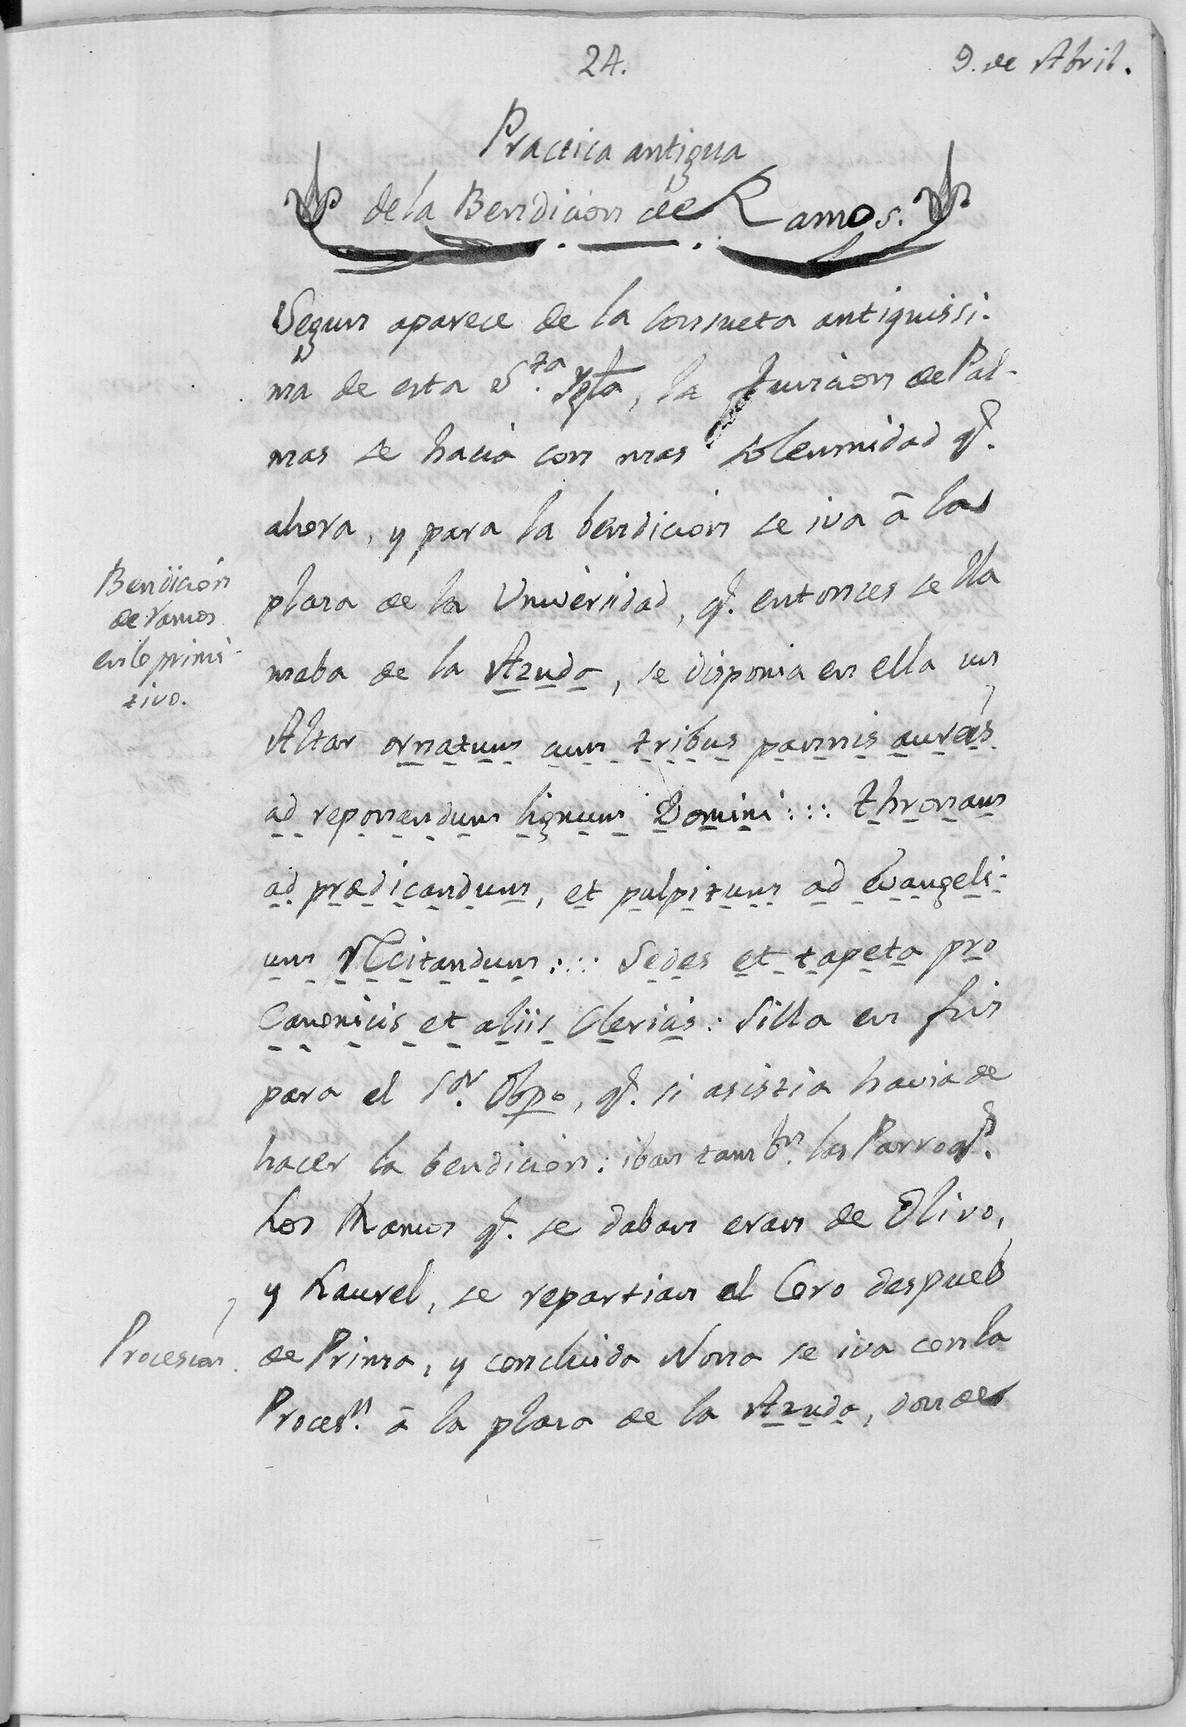 24.
9. de Abril.
Practica antigua
de la Bendicion de Ramos.
Segun aparece de la Consueta antiquissi-
ma de esta S.ta Ygla, la funcion de Pal-
mas se hacia con mas solemnidad q.
ahora, y para la bendicion se iva â la
plaza de la Universidad, q. entonces se lla
maba de la Azuda, se disponia en ella un
Altar ornatum cum tribus pannis aureis
ad reponendum lignum Domini :::: thronum
ad prædicandum, et pulpitum ad Evangeli-
um recitandum :::: Sedes et tapeta pro
Canonicis et aliis Clericis: Silla en fin
para el S.or Obpo, q. si asistia havia de
hacer la bendicion: iban tamb.n las Parroq.s
Los Ramos q. se daban eran de Olivo,
y Laurel, se repartian al Coro despues
de Prima, y concluida Nona se iva con la
Proces.n â la plaza de la Azuda, donde
Bendicion
de ramos
en lo primi-
tivo.
Procesion.